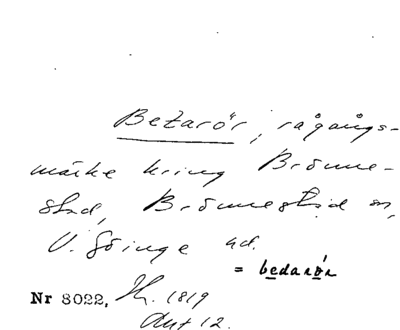 Betarör, rågångs-
märke kring Brönne-
stad, Brönnestad sn,
V. Göinge hd.
= bedarör
Nr 8022, Jh. 1819
Akt 12.